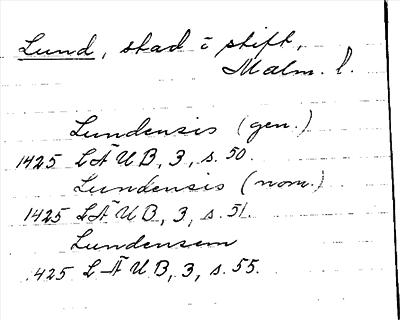 Lund, stad i stift,
Malm. l.
Lundensis (gen.)
1425 LÄUB, 3, s. 50.
Lundensis (nom.)
1425 LÄUB, 3, s. 51.
Lundensem
1425 LÄUB, 3, s. 55.